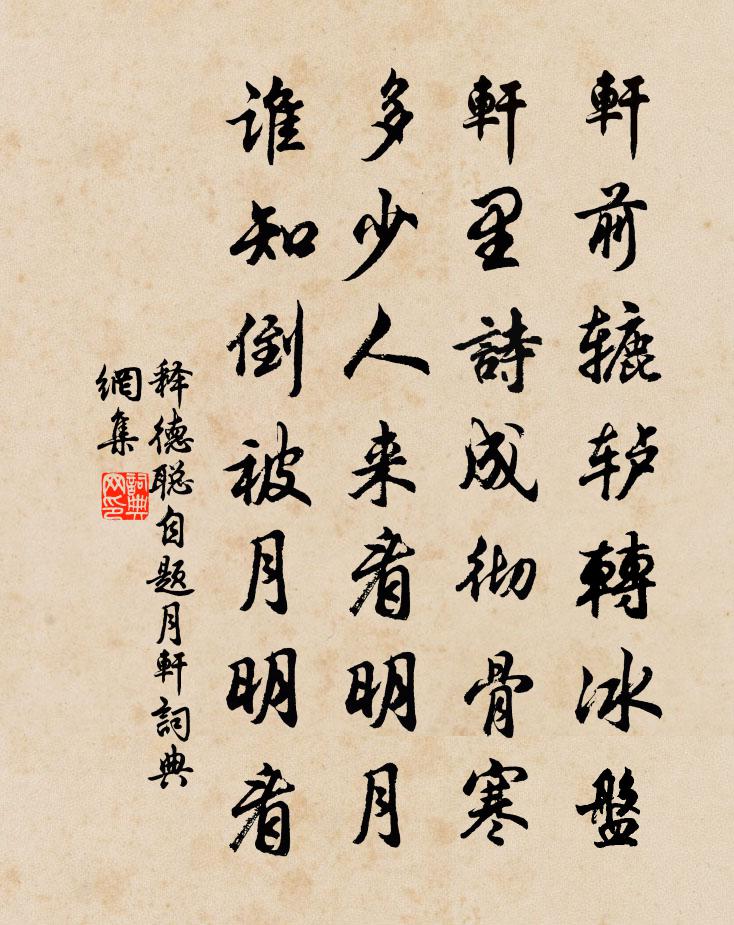 軒前辘轳轉冰盤
軒里詩成彻骨寒
多少人来看明月
谁知倒被月明看
释德聪自題月軒詞典
網集
詞典网印